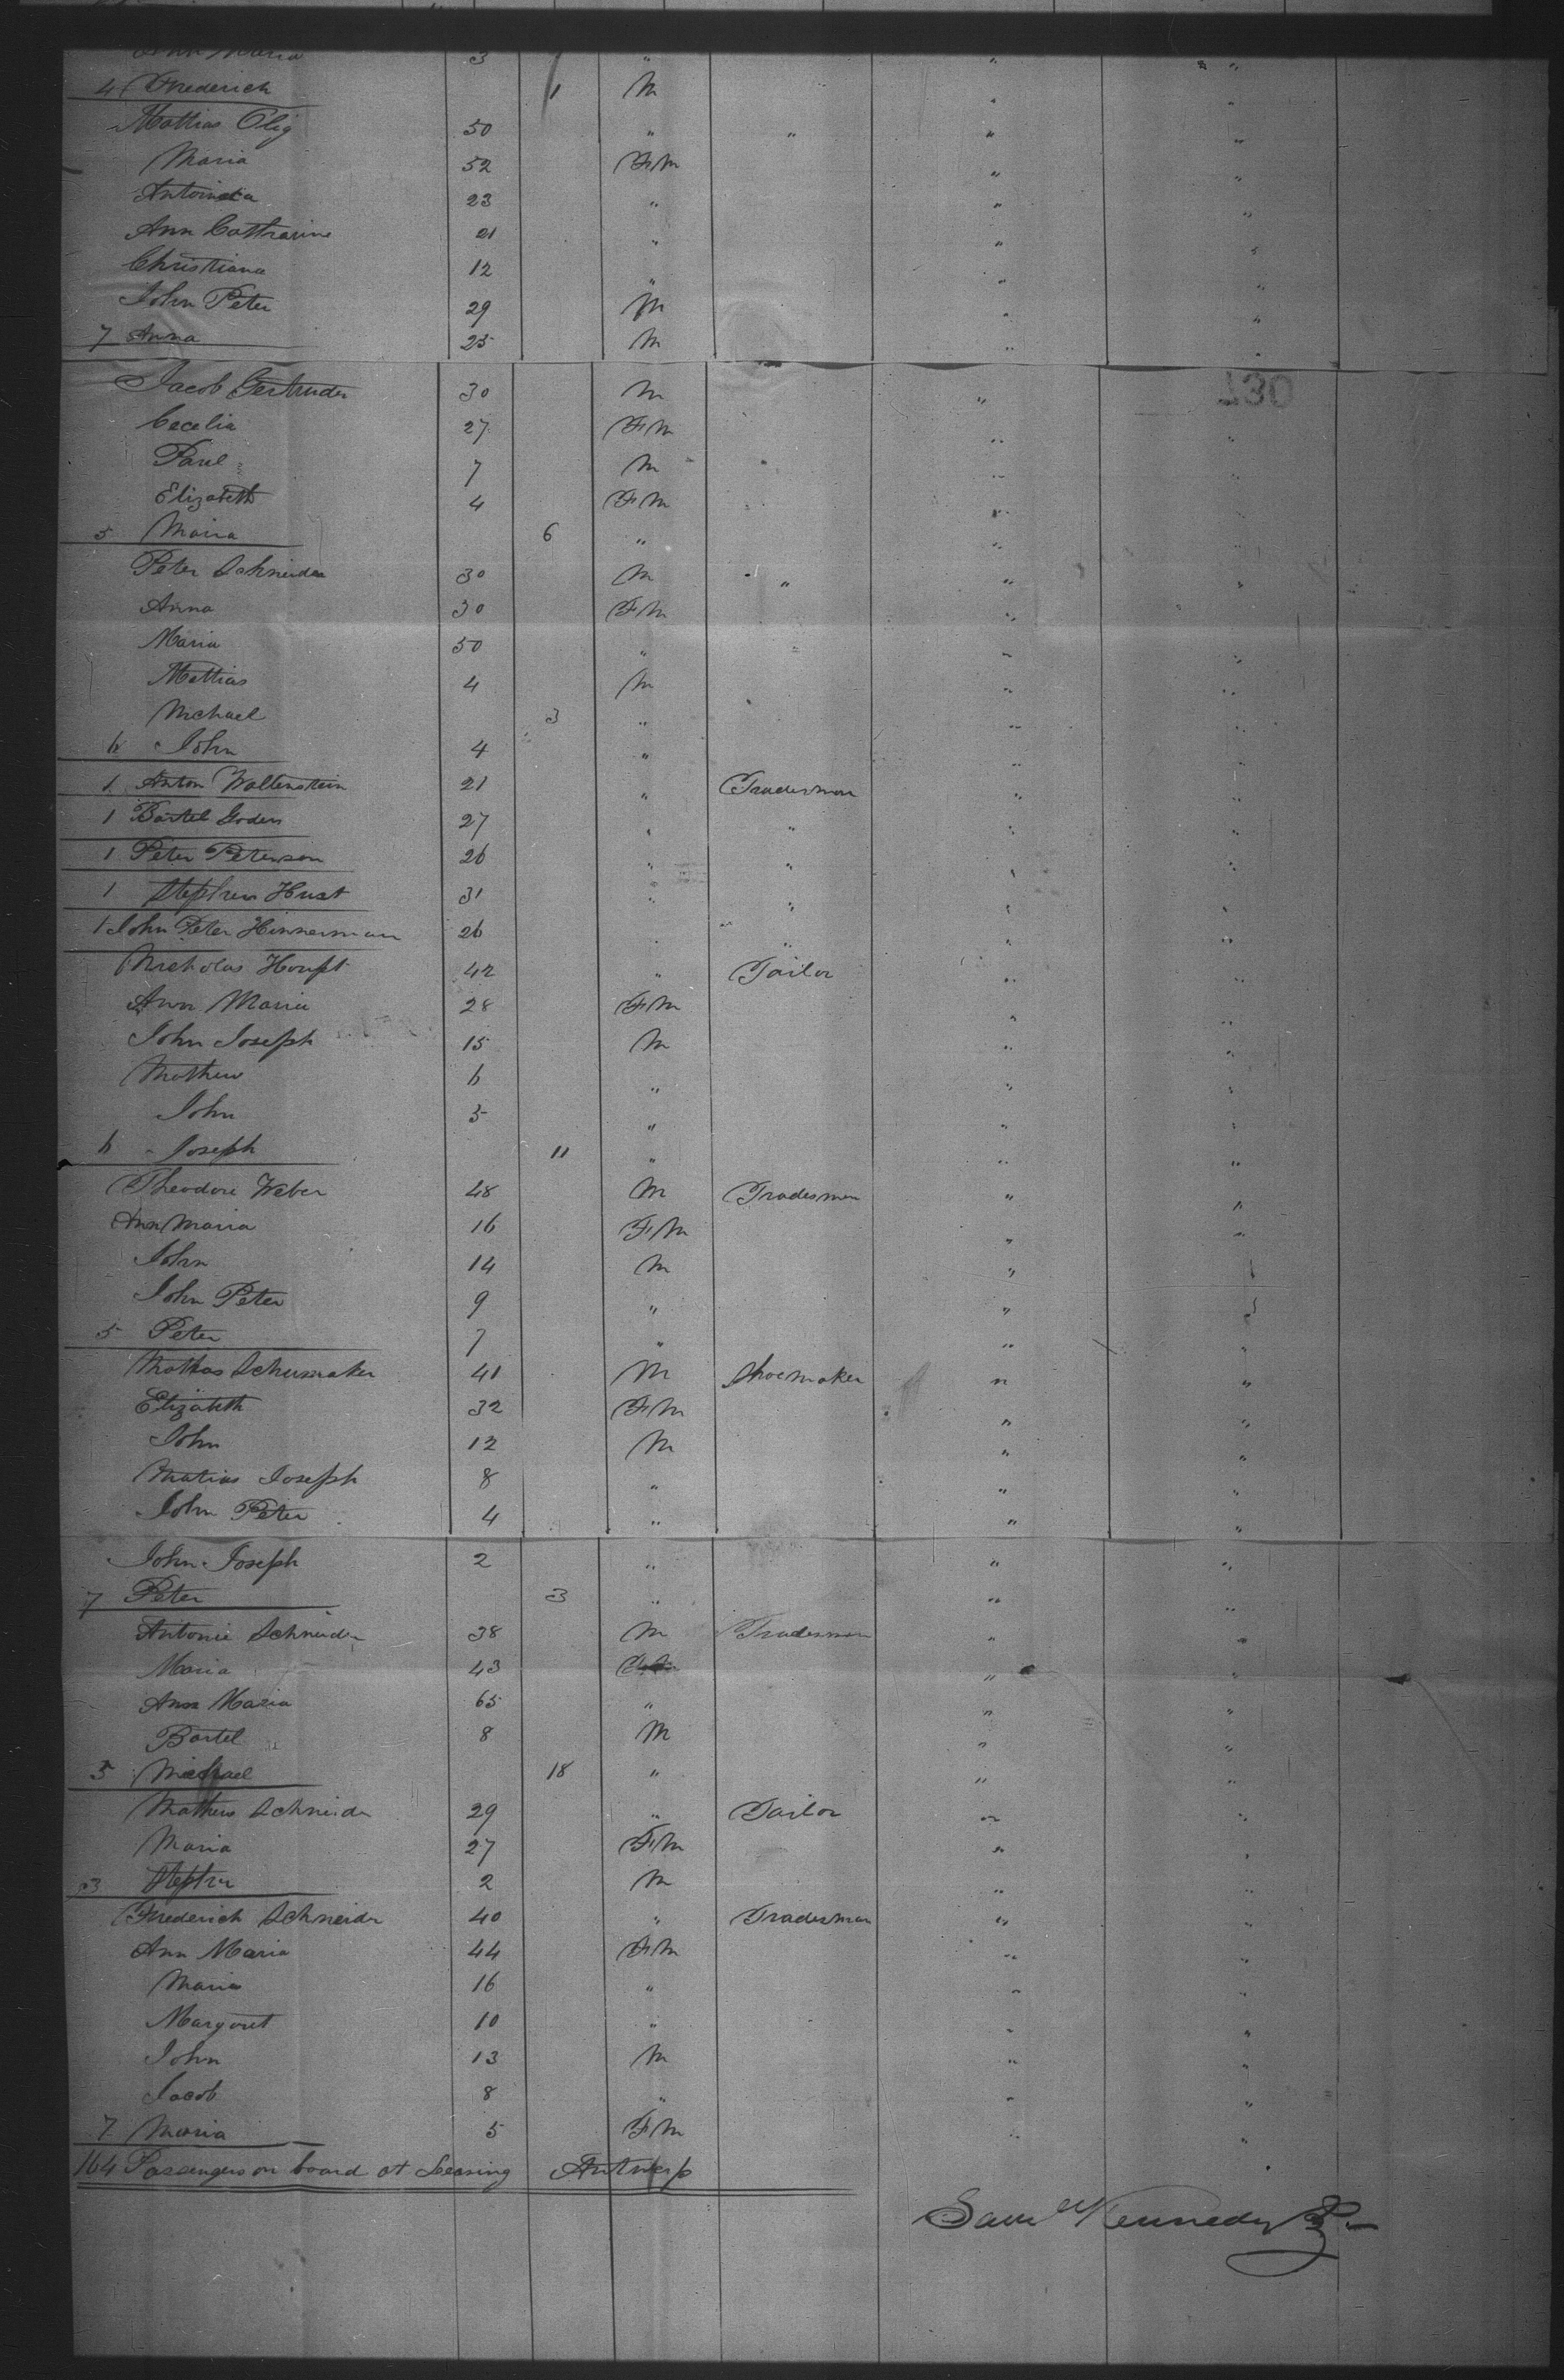 Ann Maria 3 " " "
4 Frederick 1 M " "
Mattias Olig 50 " " " "
Maria 52 FM " "
Antoinetta 23 " " "
Ann Cathrarine 21 " " "
Christiana 12 " " "
John Peter 29 M " "
7 Anna 25 M " "
Jacob Gertruder 30 M " 130
Cecelia 27 FM " "
Paul 7 M " "
Elizabeth 4 FM " "
5 Maria 6 " " "
Peter Schneider 30 M " " "
Anna 30 FM " "
Maria 50 " " "
Mattias 4 M " "
Michael 3 " " "
6 John 4 " " "
1 Anton Wallenstein 21 " Tradesman " "
1 Bartel Goders 27 " " " "
1 Peter Peterson 26 " " " "
1 Stephen Hust 31 " " " "
1 John Peter Hinnerman 26 " " " "
Nicholas Houpt 42 " Tailor " "
Ann Maria 28 FM " "
John Joseph 15 M " "
Mathew 6 " " "
John 5 " " "
6 Joseph 11 " " "
Theodore Weber 48 M Tradesman " "
Ann Maria 16 FM " "
John 14 M " "
John Peter 9 " " "
5 Peter 7 " " "
Mattias Schumaker 41 M Shoemaker " "
Elizabeth 32 FM " "
John 12 M " "
Matias Joseph 8 " " "
John Peter 4 " " "
John Joseph 2 " " "
7 Peter 3 " " "
Antonie Schneider 38 M Tradesman " "
Maria 43 " "
Ann Maria 65 " " "
Bartel 8 M " "
5 Michael 18 " " "
Mathew Schneider 29 " Tailor " "
Maria 27 FM " "
3 Stephen 2 M " "
Frederich Schneider 40 " Tradesman " "
Ann Maria 44 FM " "
Maria 16 " " "
Margaret 10 " " "
John 13 M " "
Jacob 8 " " "
7 Maria 5 FM " "
164 Passengers on board at Leaving Antwerp
Saml Kennedy